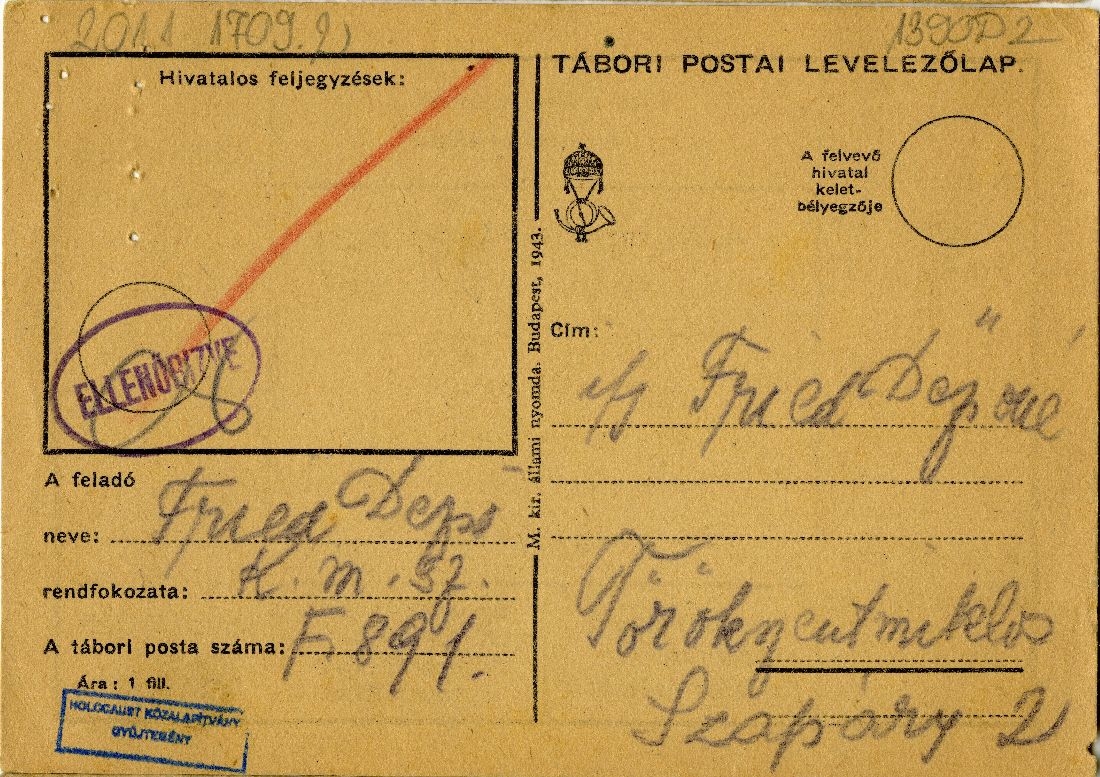 2011.1709.2)
1390D2
Hivatalos feljegyzések:
ELLENŐRIZVE
A feladó
neve: Fried Dezső
rendfokozata: K. m. sz.
A tábori posta száma: F. 891.
Ára: 1 fill.
HOLOCAUST KÖZALAPÍTVÁNY
GYŰJTEMÉNY
M. kir. állami nyomda. Budapest, 1943.
TÁBORI POSTAI LEVELEZŐLAP.
A felvevő
hivatal
kelet-
bélyegzője
Cím:
ifj Fried Dezsőné
Törökszentmiklós
Szapáry 21